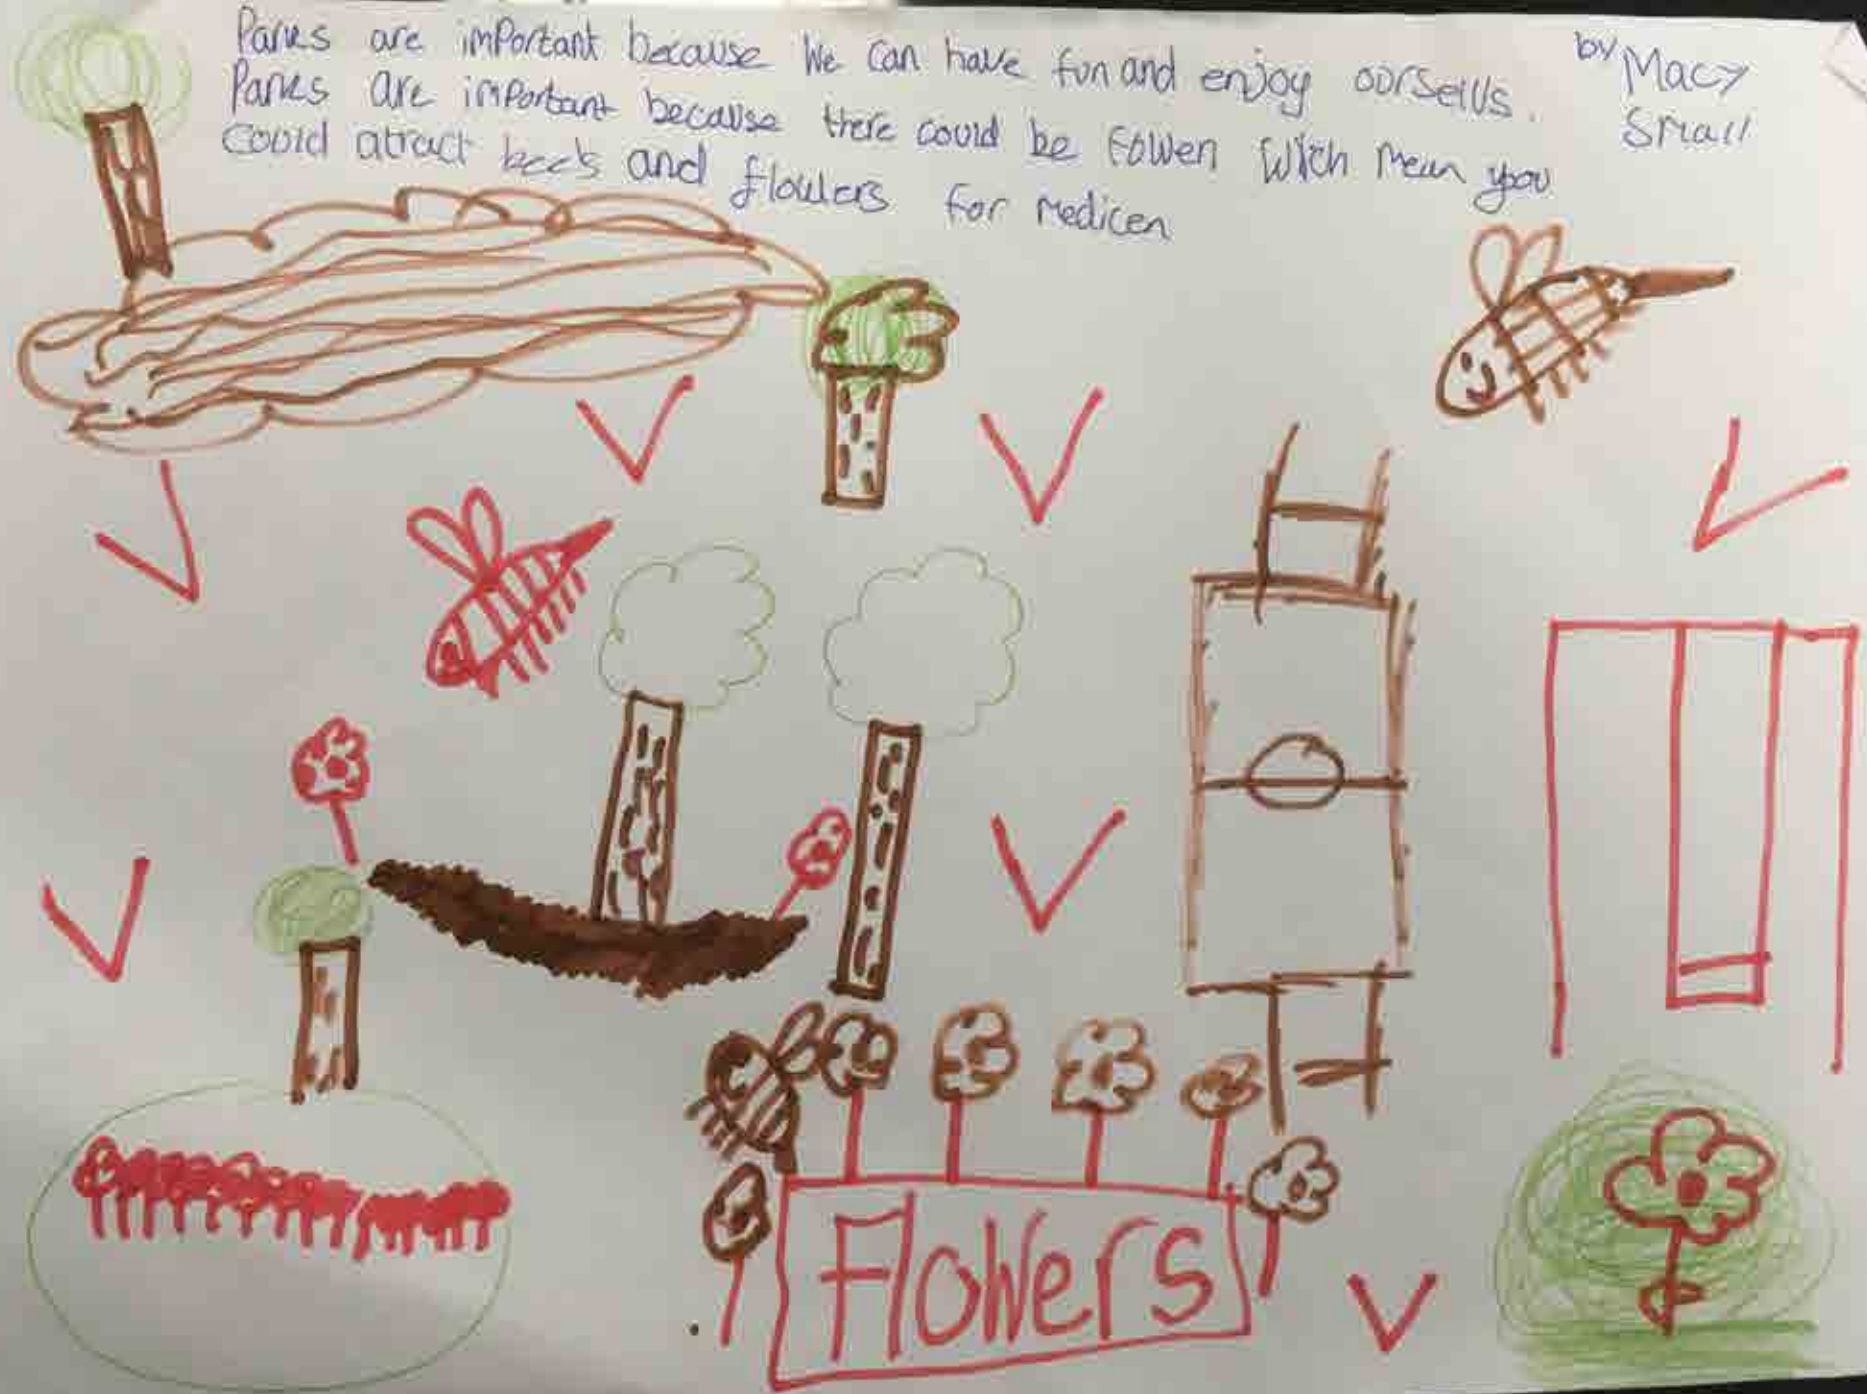 Parks are important because We can have fun and enjoy oorselVs.
Parks are important because there could be folwen Wich mean you
Could atract bee's and flowers for medicen
by Macy
Small
Flowers